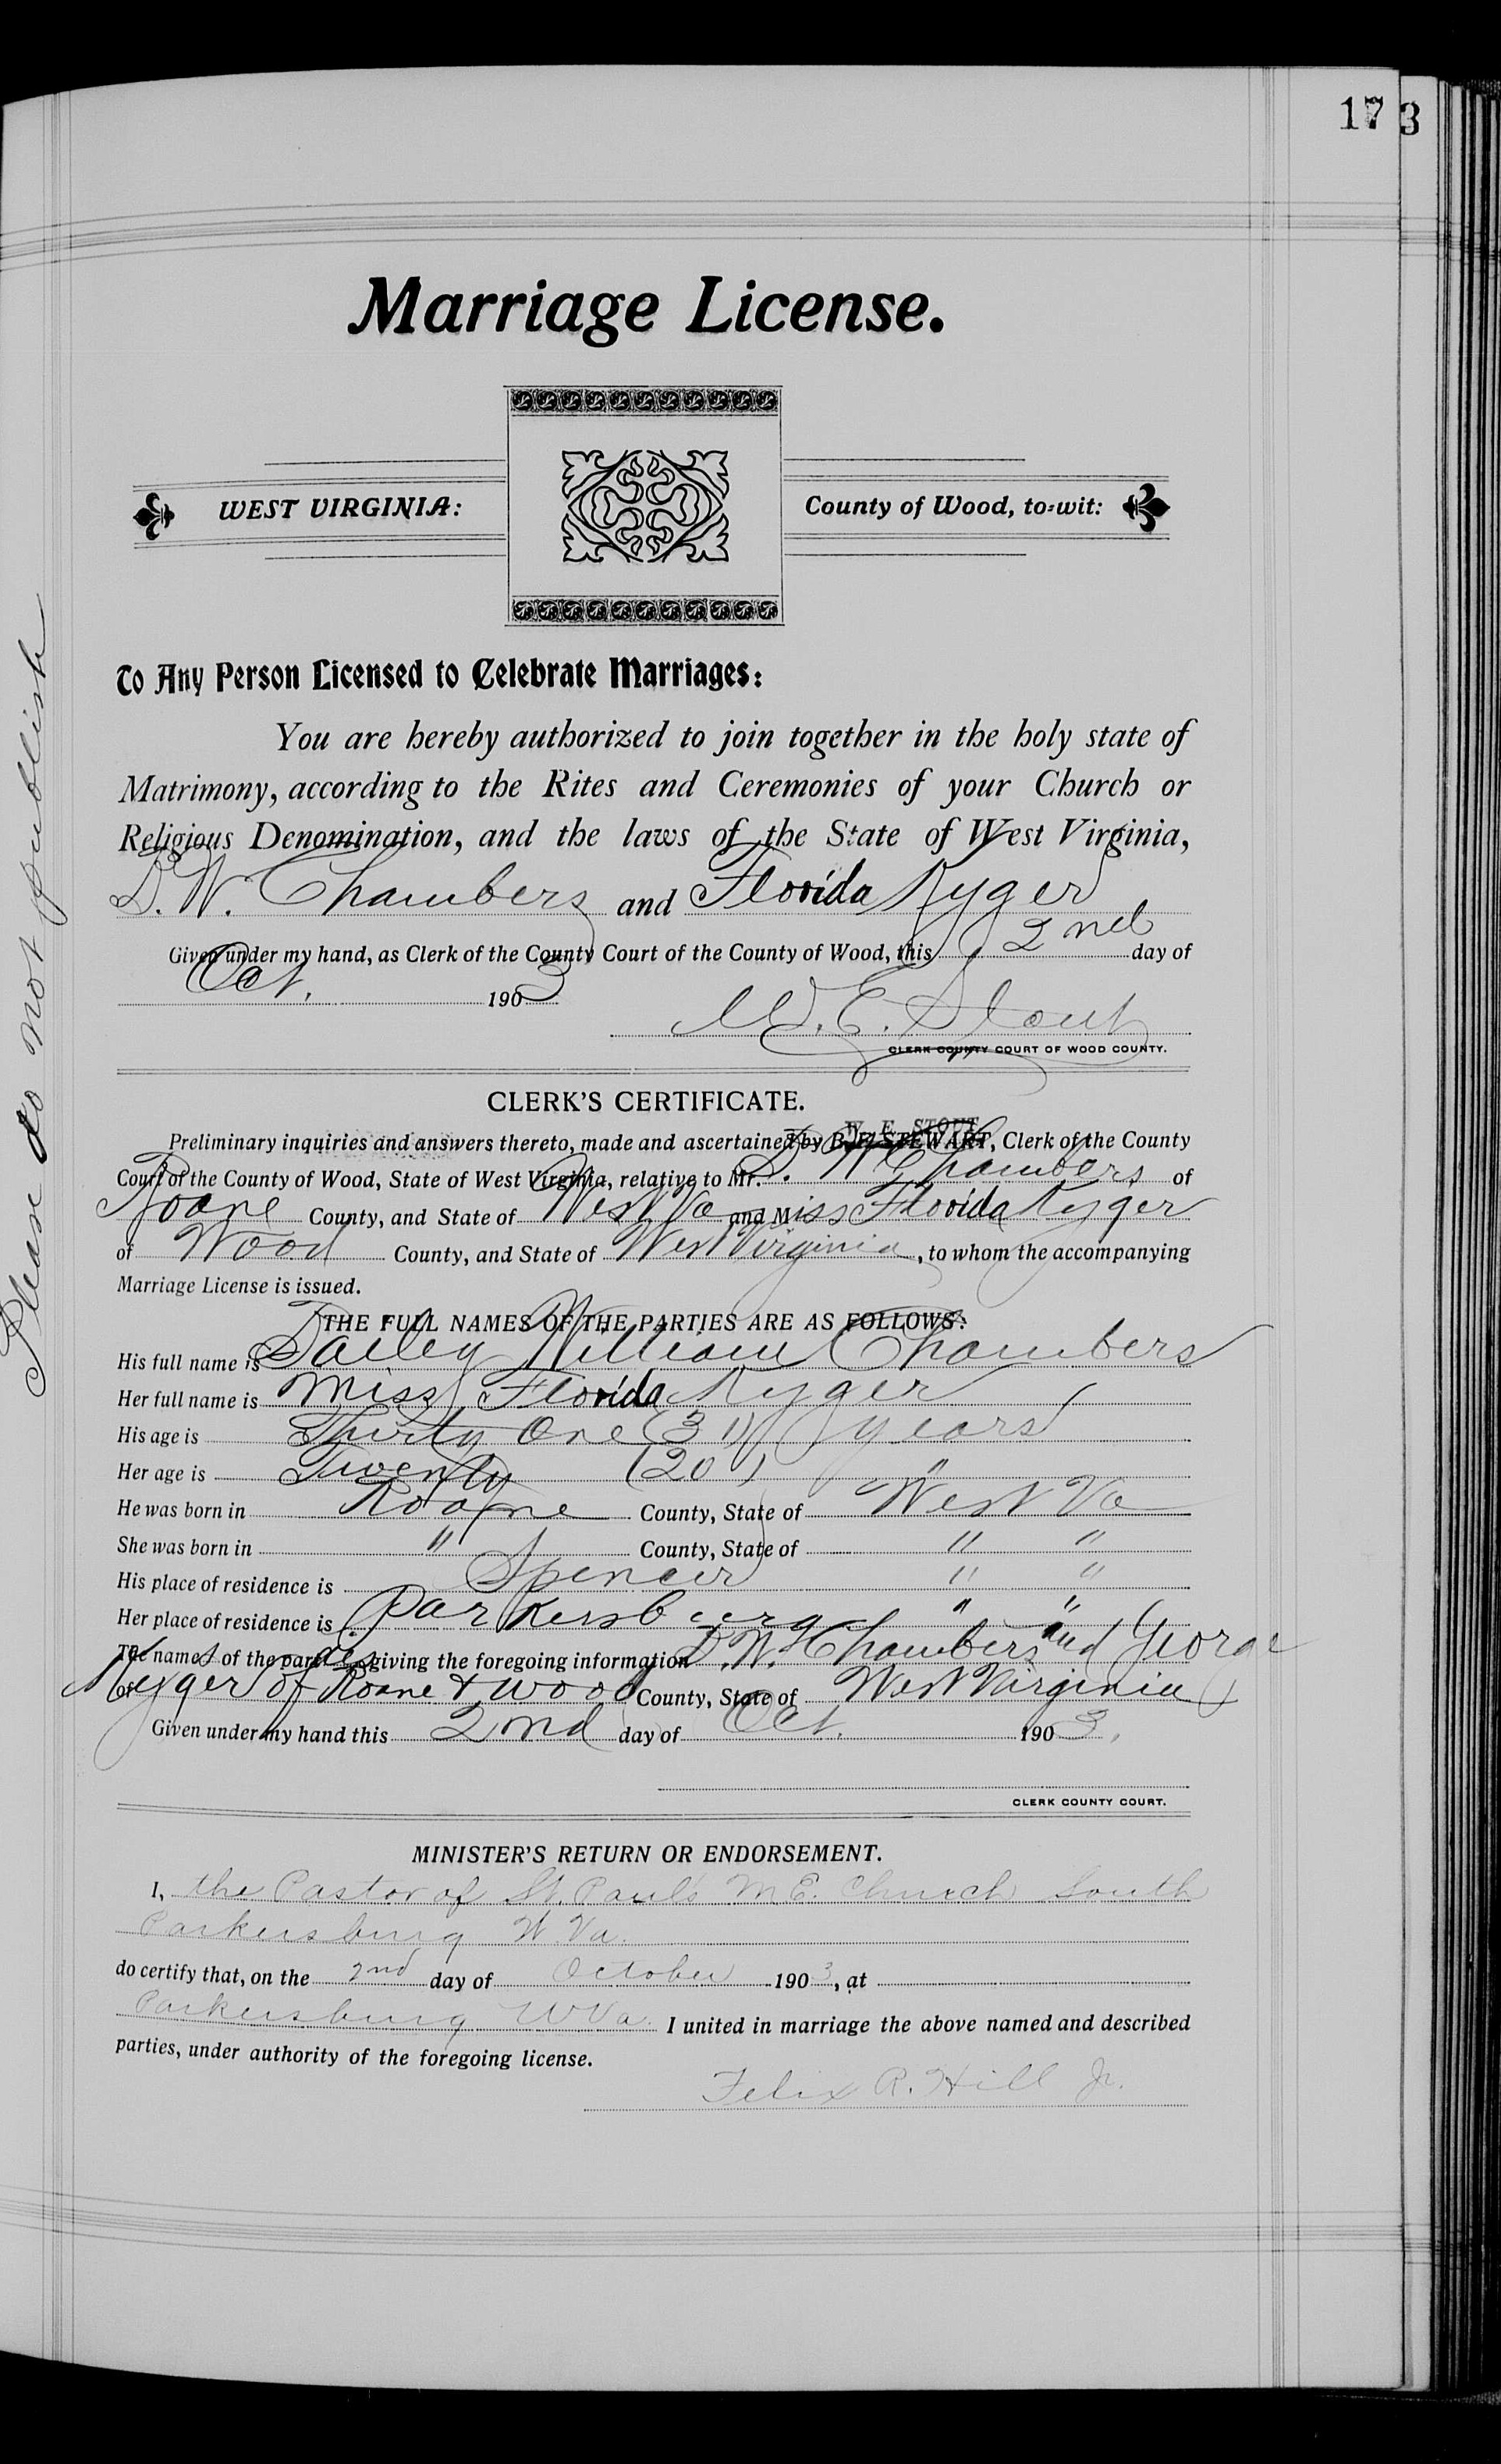 173
Marriage License.
WEST VIRGINIA: County of Wood, to=wit:
To Any Person Licensed to Celebrate Marriages:
You are hereby authorized to join together in the holy state of
Matrimony, according to the Rites and Ceremonies of your Church or
Religious Denomination, and the laws of the State of West Virginia,
D. W. Chambers and Florida Kyger
Given under my hand, as Clerk of the County Court of the County of Wood, this 2nd day of
Oct. 1903
W. E. Stout
CLERK COUNTY COURT OF WOOD COUNTY.
CLERK'S CERTIFICATE.
W. E. STOUT
Preliminary inquiries and answers thereto, made and ascertained by B. F. STEWART, Clerk of the County
Court of the County of Wood, State of West Virginia, relative to Mr. D. W. Chambers of
Roane County, and State of West Va and Miss Florida Kyger
of Wood County, and State of West Virginia, to whom the accompanying
Marriage License is issued.
THE FULL NAMES OF THE PARTIES ARE AS FOLLOWS:
His full name is Dailey William Chambers
Her full name is Miss Florida Kyger
His age is Thirty One (31) years
Her age is Twenty (20) "
He was born in Roane County, State of West Va
She was born in " County, State of " "
His place of residence is Spencer " "
Her place of residence is Parkersburg " "
The names of the parties giving the foregoing information D. W. Chambers and George
Kyger of Roane & Wood County, State of West Virginia
Given under my hand this 2nd day of Oct. 1903.
CLERK COUNTY COURT.
MINISTER'S RETURN OR ENDORSEMENT.
I, the Pastor of St. Paul's M.E. Church South
Parkersburg W. Va.
do certify that, on the 2nd day of October 1903, at
Parkersburg W Va. I united in marriage the above named and described
parties, under authority of the foregoing license.
Felix R. Hill Jr.
Please do not publish